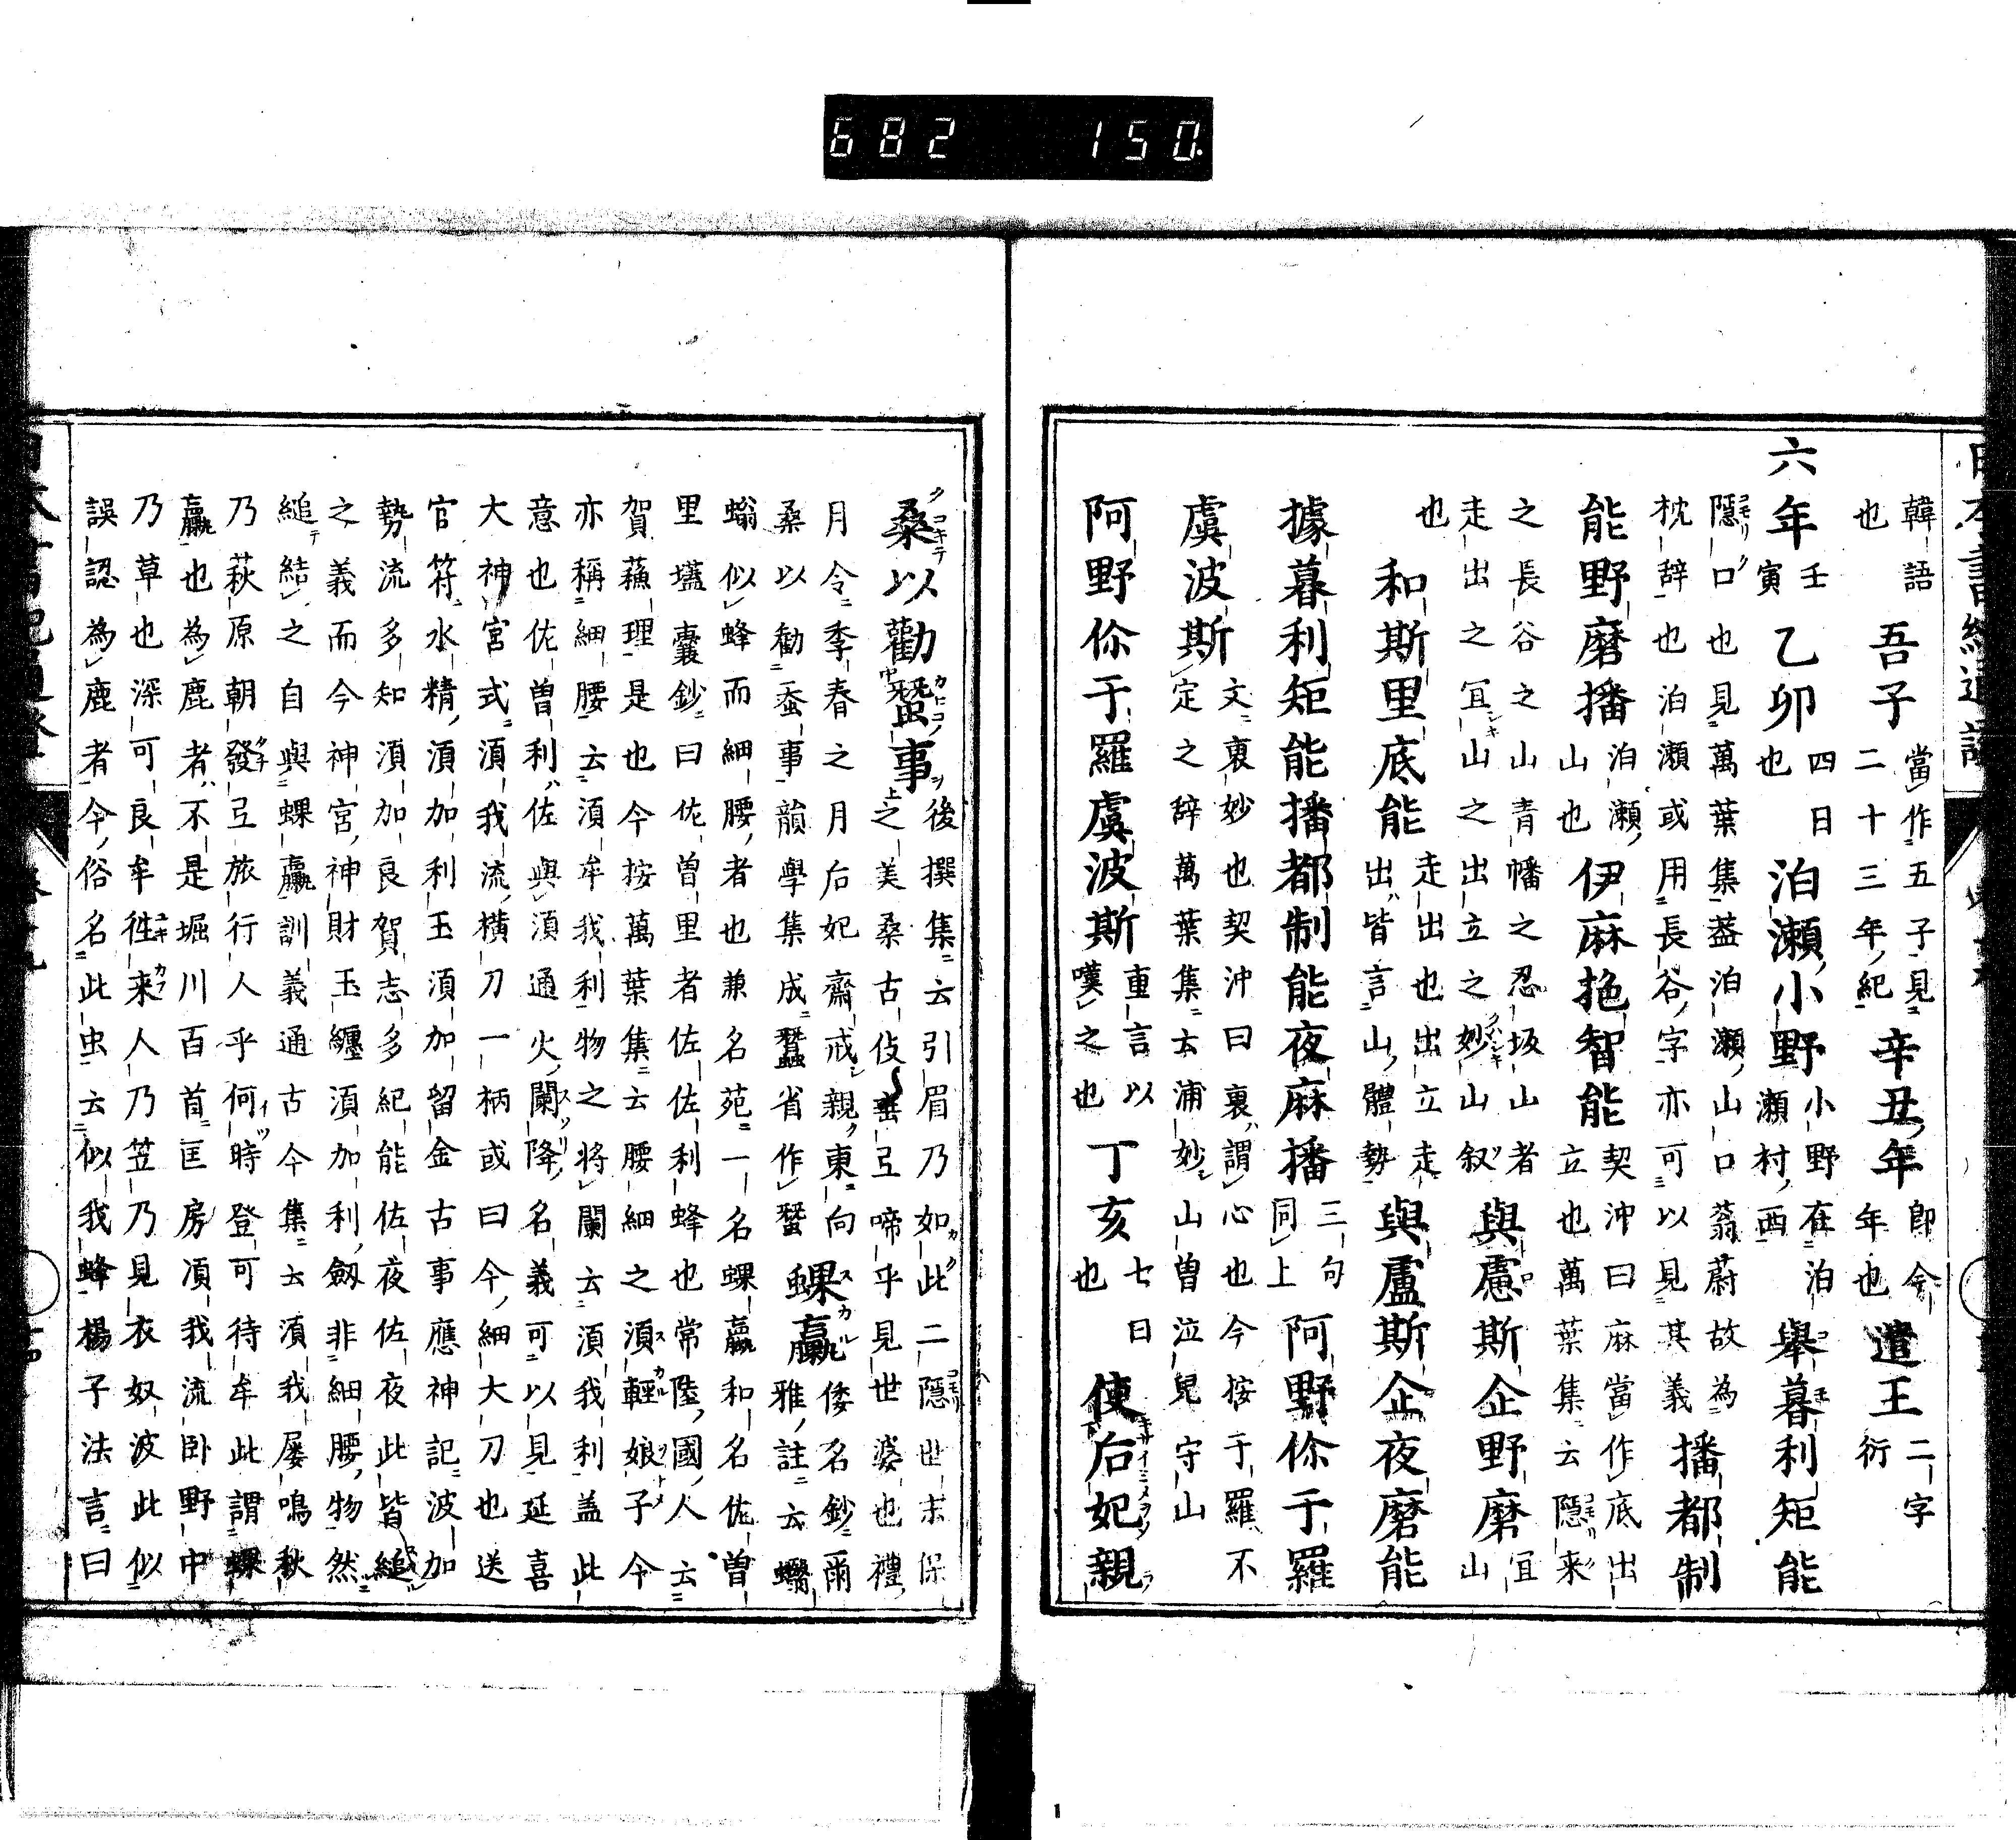 韓語也 吾子 當作五子見二十三年紀 辛丑年 卽今年也 遣王 二字衍
六年 壬寅 乙卯 四日也 泊瀬小野 小野在泊瀬村西 擧暮利矩能
隱口也見萬葉集葢泊瀬山口蓊蔚故為枕辞也泊瀬或用長谷字亦可以見其義 播都制
能野磨播 泊瀬山也 伊麻拖智能 契沖曰麻當作底出立也萬葉集云隱来
之長谷之山青幡之忍坂山者走出之冝山之出立之妙山叙 與慮斯企野磨 冝山
也 和斯里底能 走出也出立走出皆言山體勢 與盧斯企夜磨能
據暮利矩能播都制能夜麻播 三句同上 阿野伱于羅
虞波斯 文裏妙也契沖曰裏謂心也今按于羅不定之辞萬葉集云浦妙山曽泣兒守山
阿野伱于羅虞波斯 重言以嘆之也 丁亥 七日也 使后妃親
桑以勸蠶事 後撰集云引眉乃如此二隱世末保之美桑古伎垂弖啼乎見世婆也禮
月令季春之月后妃齋戒親東向桑以勸蚕事韻學集成蠶省作蝅 蜾蠃 倭名鈔爾雅註云蠮
螉似蜂而細腰者也兼名苑一名蜾蠃和名佐曽
里壒囊鈔曰佐曽里者佐佐利蜂也常陸國人云
賀蘓理是也今按萬葉集云腰細之湏輕娘子今
亦稱細腰云湏牟我利物之將闌云湏我利盖此
意也佐曽利佐與湏通火闌降名義可以見延喜
大神宮式湏我流横刀一柄或曰今細大刀也送
官符水精湏加利玉湏加留金古事應神記波加
勢流多知湏加良賀志多紀能佐夜佐夜此皆縋
之義而今神宮神財玉纏湏加利劔非細腰物然
縋結之自與蜾蠃訓義通古今集云湏我屡鳴秋
乃萩原朝發弖旅行人乎何時登可待牟此謂蜾
蠃也為鹿者不是堀川百首匡房湏我流卧野中
乃草也深可良牟徃来人乃笠乃見衣奴波此似
誤認為鹿者今俗名此虫云似我蜂楊子法言曰
682 150